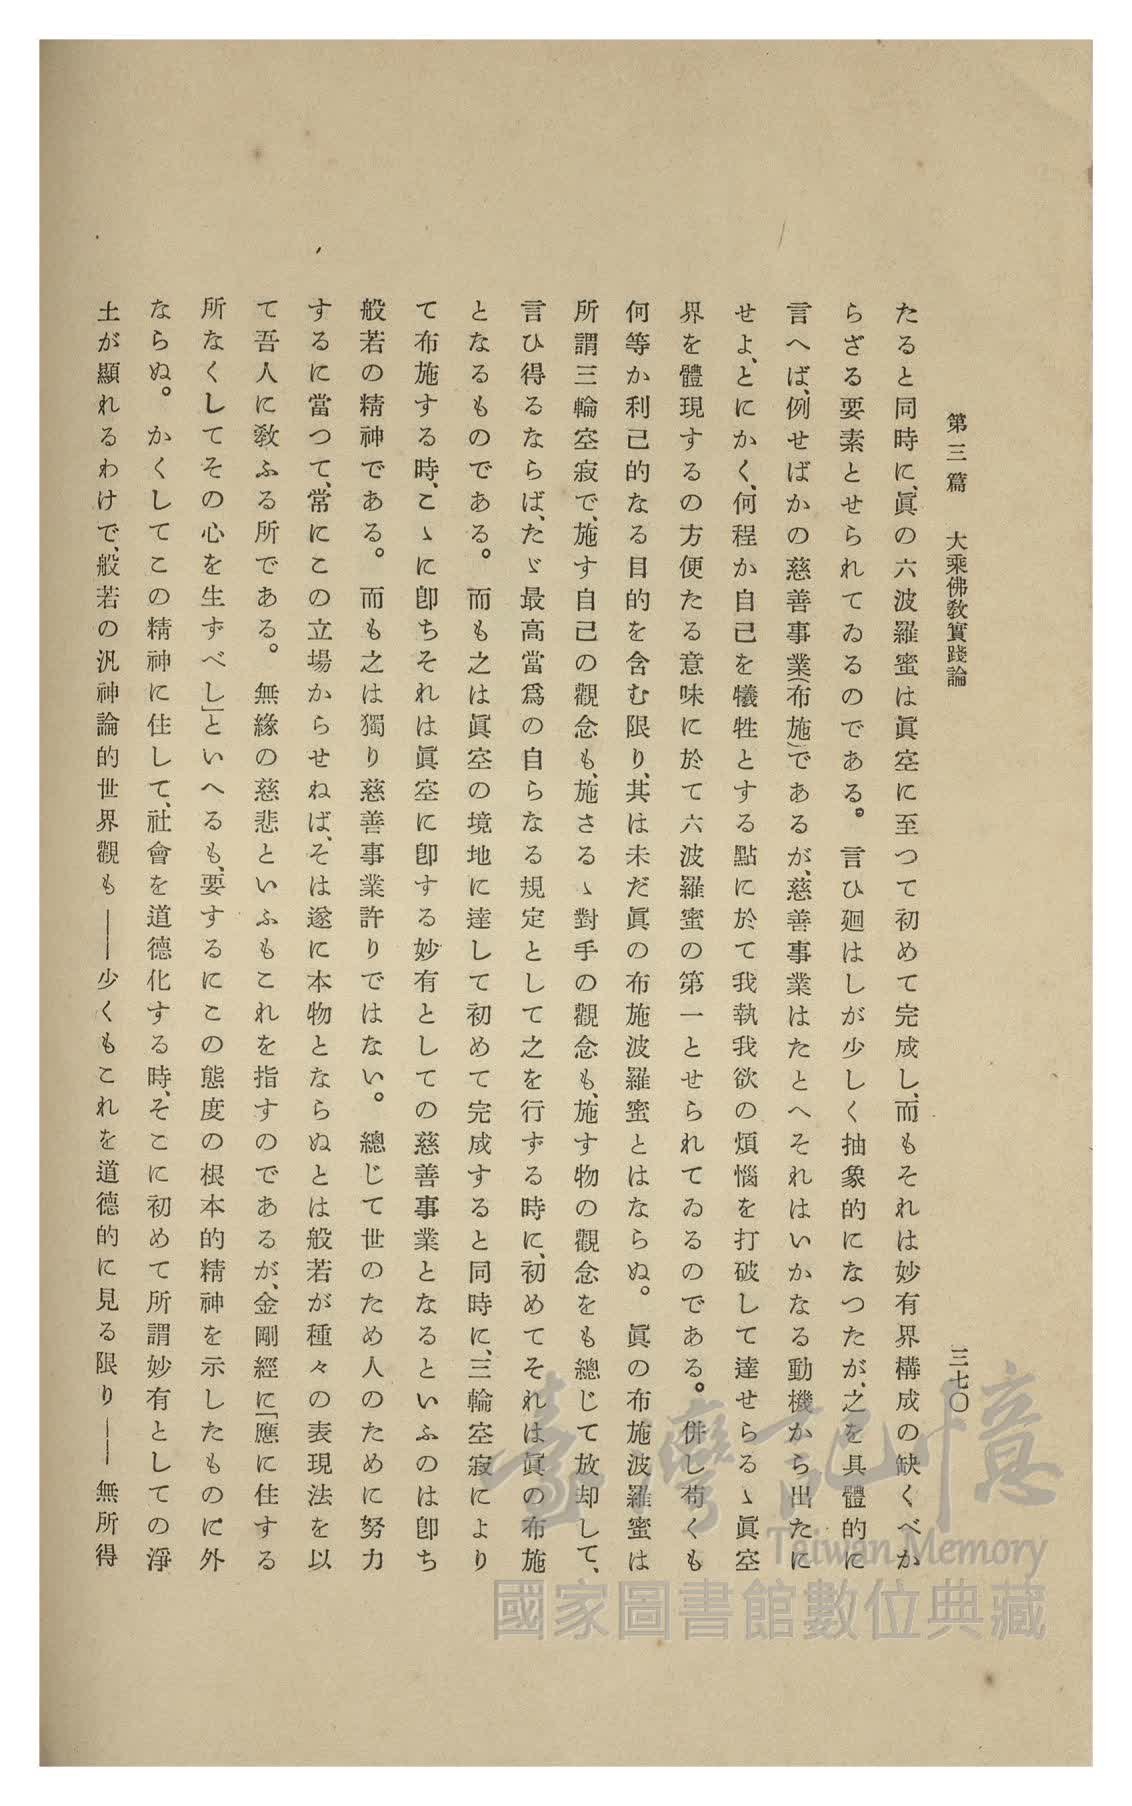 第三篇　大乘佛敎實踐論　三七〇
たると同時に、眞の六波羅蜜は眞空に至つて初めて完成し、而もそれは妙有界構成の缺くべか
らざる要素とせられてゐるのである。言ひ廻はしが少しく抽象的になつたが、之を具體的に
言へば、例せばかの慈善事業(布施)であるが、慈善事業はたとへそれはいかなる動機から出たに
せよ、とにかく、何程か自己を犧牲とする點に於て我執我欲の煩惱を打破して達せらるゝ眞空
界を體現するの方便たる意味に於て六波羅蜜の第一とせられてゐるのである。併し苟くも
何等か利己的なる目的を含む限り、其は未だ眞の布施波羅蜜とはならぬ。眞の布施波羅蜜は
所謂三輪空寂で、施す自己の觀念も、施さるゝ對手の觀念も、施す物の觀念をも總じて放却して、
言ひ得るならば、たゞ最高當爲の自らなる規定として之を行ずる時に、初めてそれは眞の布施
となるものである。而も之は眞空の境地に達して初めて完成すると同時に、三輪空寂により
て布施する時、こゝに卽ちそれは眞空に卽する妙有としての慈善事業となるといふのは卽ち
般若の精神である。而も之は獨り慈善事業許りではない。總じて世のため人のために努力
するに當つて、常にこの立場からせねば、そは遂に本物とならぬとは般若が種々の表現法を以
て吾人に敎ふる所である。無緣の慈悲といふもこれを指すのであるが、金剛經に「應に住する
所なくしてその心を生ずべし」といへるも、要するにこの態度の根本的精神を示したものに外
ならぬ。かくしてこの精神に住して、社會を道德化する時、そこに初めて所謂妙有としての淨
土が顯れるわけで、般若の汎神論的世界觀も――少くもこれを道德的に見る限り――無所得
臺灣記憶
Taiwan Memory
國家圖書館數位典藏